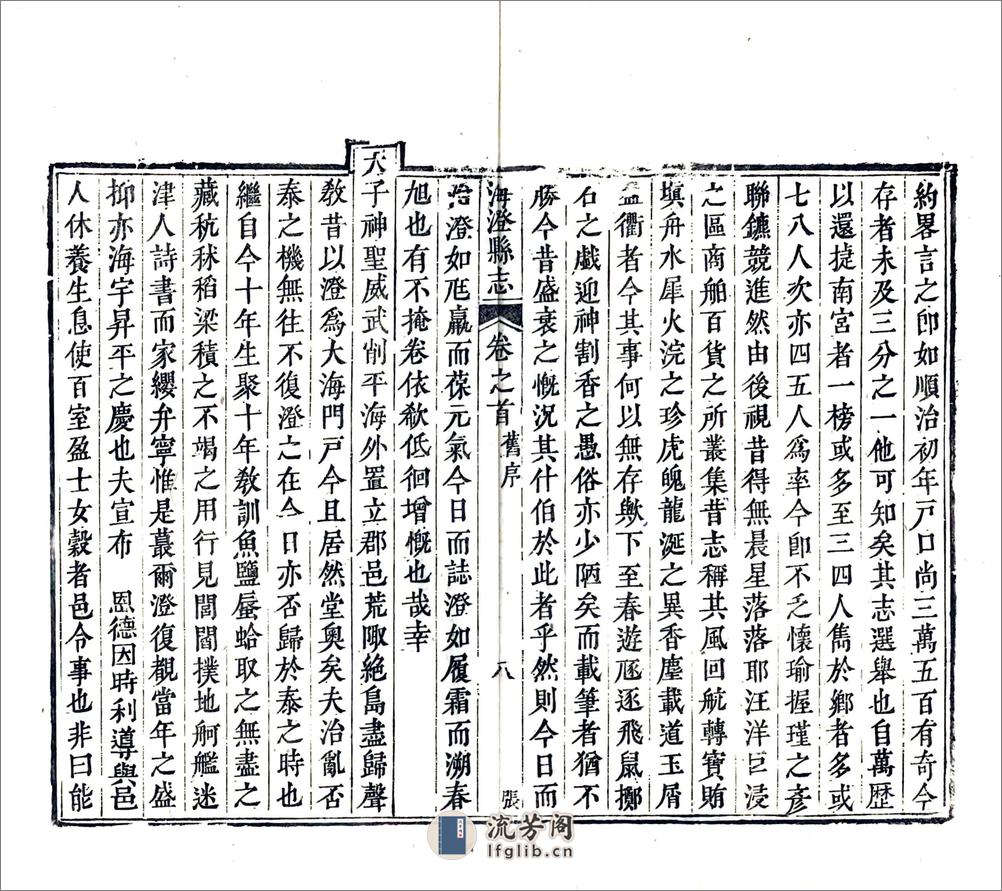 約畧言之卽如順治初年戸口尚三萬五百有奇今
存者未及三分之一他可知矣其志選舉也自萬歴
以還捷南宮者一榜或多至三四人雋於鄉者多或
七八人次亦四五人爲率今卽不乏懷瑜握瑾之彥
聯鑣競進然由後視昔得無晨星落落耶汪洋巨浸
之區商舶百貨之所叢集昔志稱其風回航轉寳賄
塡舟水犀火浣之珍虎魄龍涎之異香塵載道玉屑
盈衢者今其事何以無存歟下至春遊逐飛鼠擲
石之戲迎神割香之愚俗亦少陋矣而載筆者猶不
勝今昔盛衰之慨況其什伯於此者乎然則今日而
海澄縣志 卷之首 舊序 八 張
治澄如尫羸而葆元氣今日而誌澄如履霜而溯春
旭也有不掩卷依欷低徊增慨也哉幸
天子神聖威武削平海外置立郡邑荒陬絶島盡歸聲
敎昔以澄爲大海門戸今且居然堂奥矣夫治亂否
泰之機無往不復澄之在今日亦否歸於泰之時也
繼自今十年生聚十年敎訓魚鹽蜃蛤取之無盡之
藏秔秫稻粱積之不竭之用行見閭閻撲地舸艦迷
津人詩書而家纓弁寧惟是蕞爾澄復覩當年之盛
抑亦海宇昇平之慶也夫宣布 恩德因時利導與邑
人休養生息使百室盈士女糓者邑令事也非曰能
流芳阁
lfglib.cn